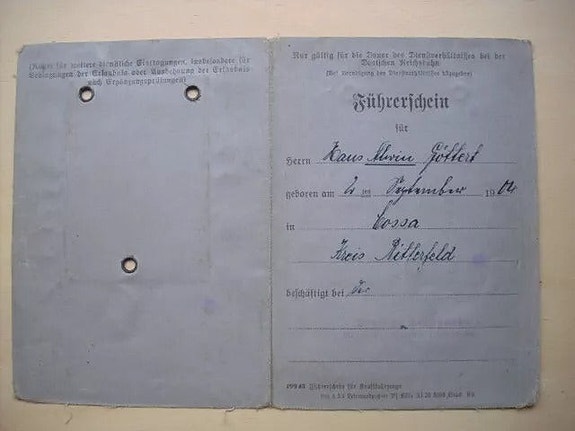 (Raum für weitere dienstliche Eintragungen, insbesondere für
Ergänzungen der Erlaubnis oder Ausdehnung der Erlaubnis
nach Ergänzungsprüfungen)
Nur gültig für die Dauer des Dienstverhältnisses bei der
Deutschen Reichsbahn
(Bei Beendigung des Dienstverhältnisses abzugeben)
Führerschein
für
Herrn Hans Alwin Göttert
geboren am 2. ten September 1904
in Cossa
Kreis Bitterfeld
beschäftigt bei der
Führerschein für Kraftfahrzeuge